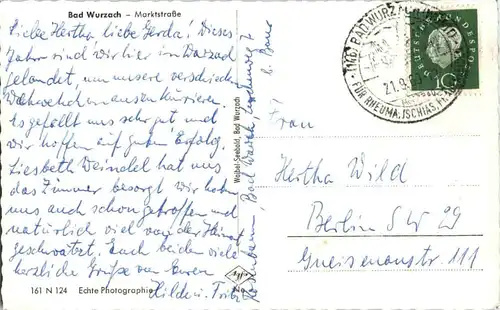 Bad Wurzach – Marktstraße
Liebe Hertha liebe Gerda! Dieses
Jahr sind wir hier in Wurzach
gelandet, um unsere verschied.
Wehwehchen auszukurieren.
Es gefällt uns sehr gut und
wir hoffen auf guten Erfolg.
Liesbeth Deindel hat uns
das Zimmer besorgt wir haben
uns auch schon getroffen und
natürlich viel von der Heimat
geschwätzt. Euch beiden viele
herzliche Grüße von Euren
Hilde u. Fritz
161 N 124 Echte Photographie
Bad
b. Baur
Weibel-Seebold, Bad Wurzach
(14b) BAD WURZACH
21.9.
FÜR RHEUMA, ISCHIAS
DEUTSCHE BUNDESPOST
10
Frau
Hertha Wild
Berlin SW 29
Gneisenaustr 111